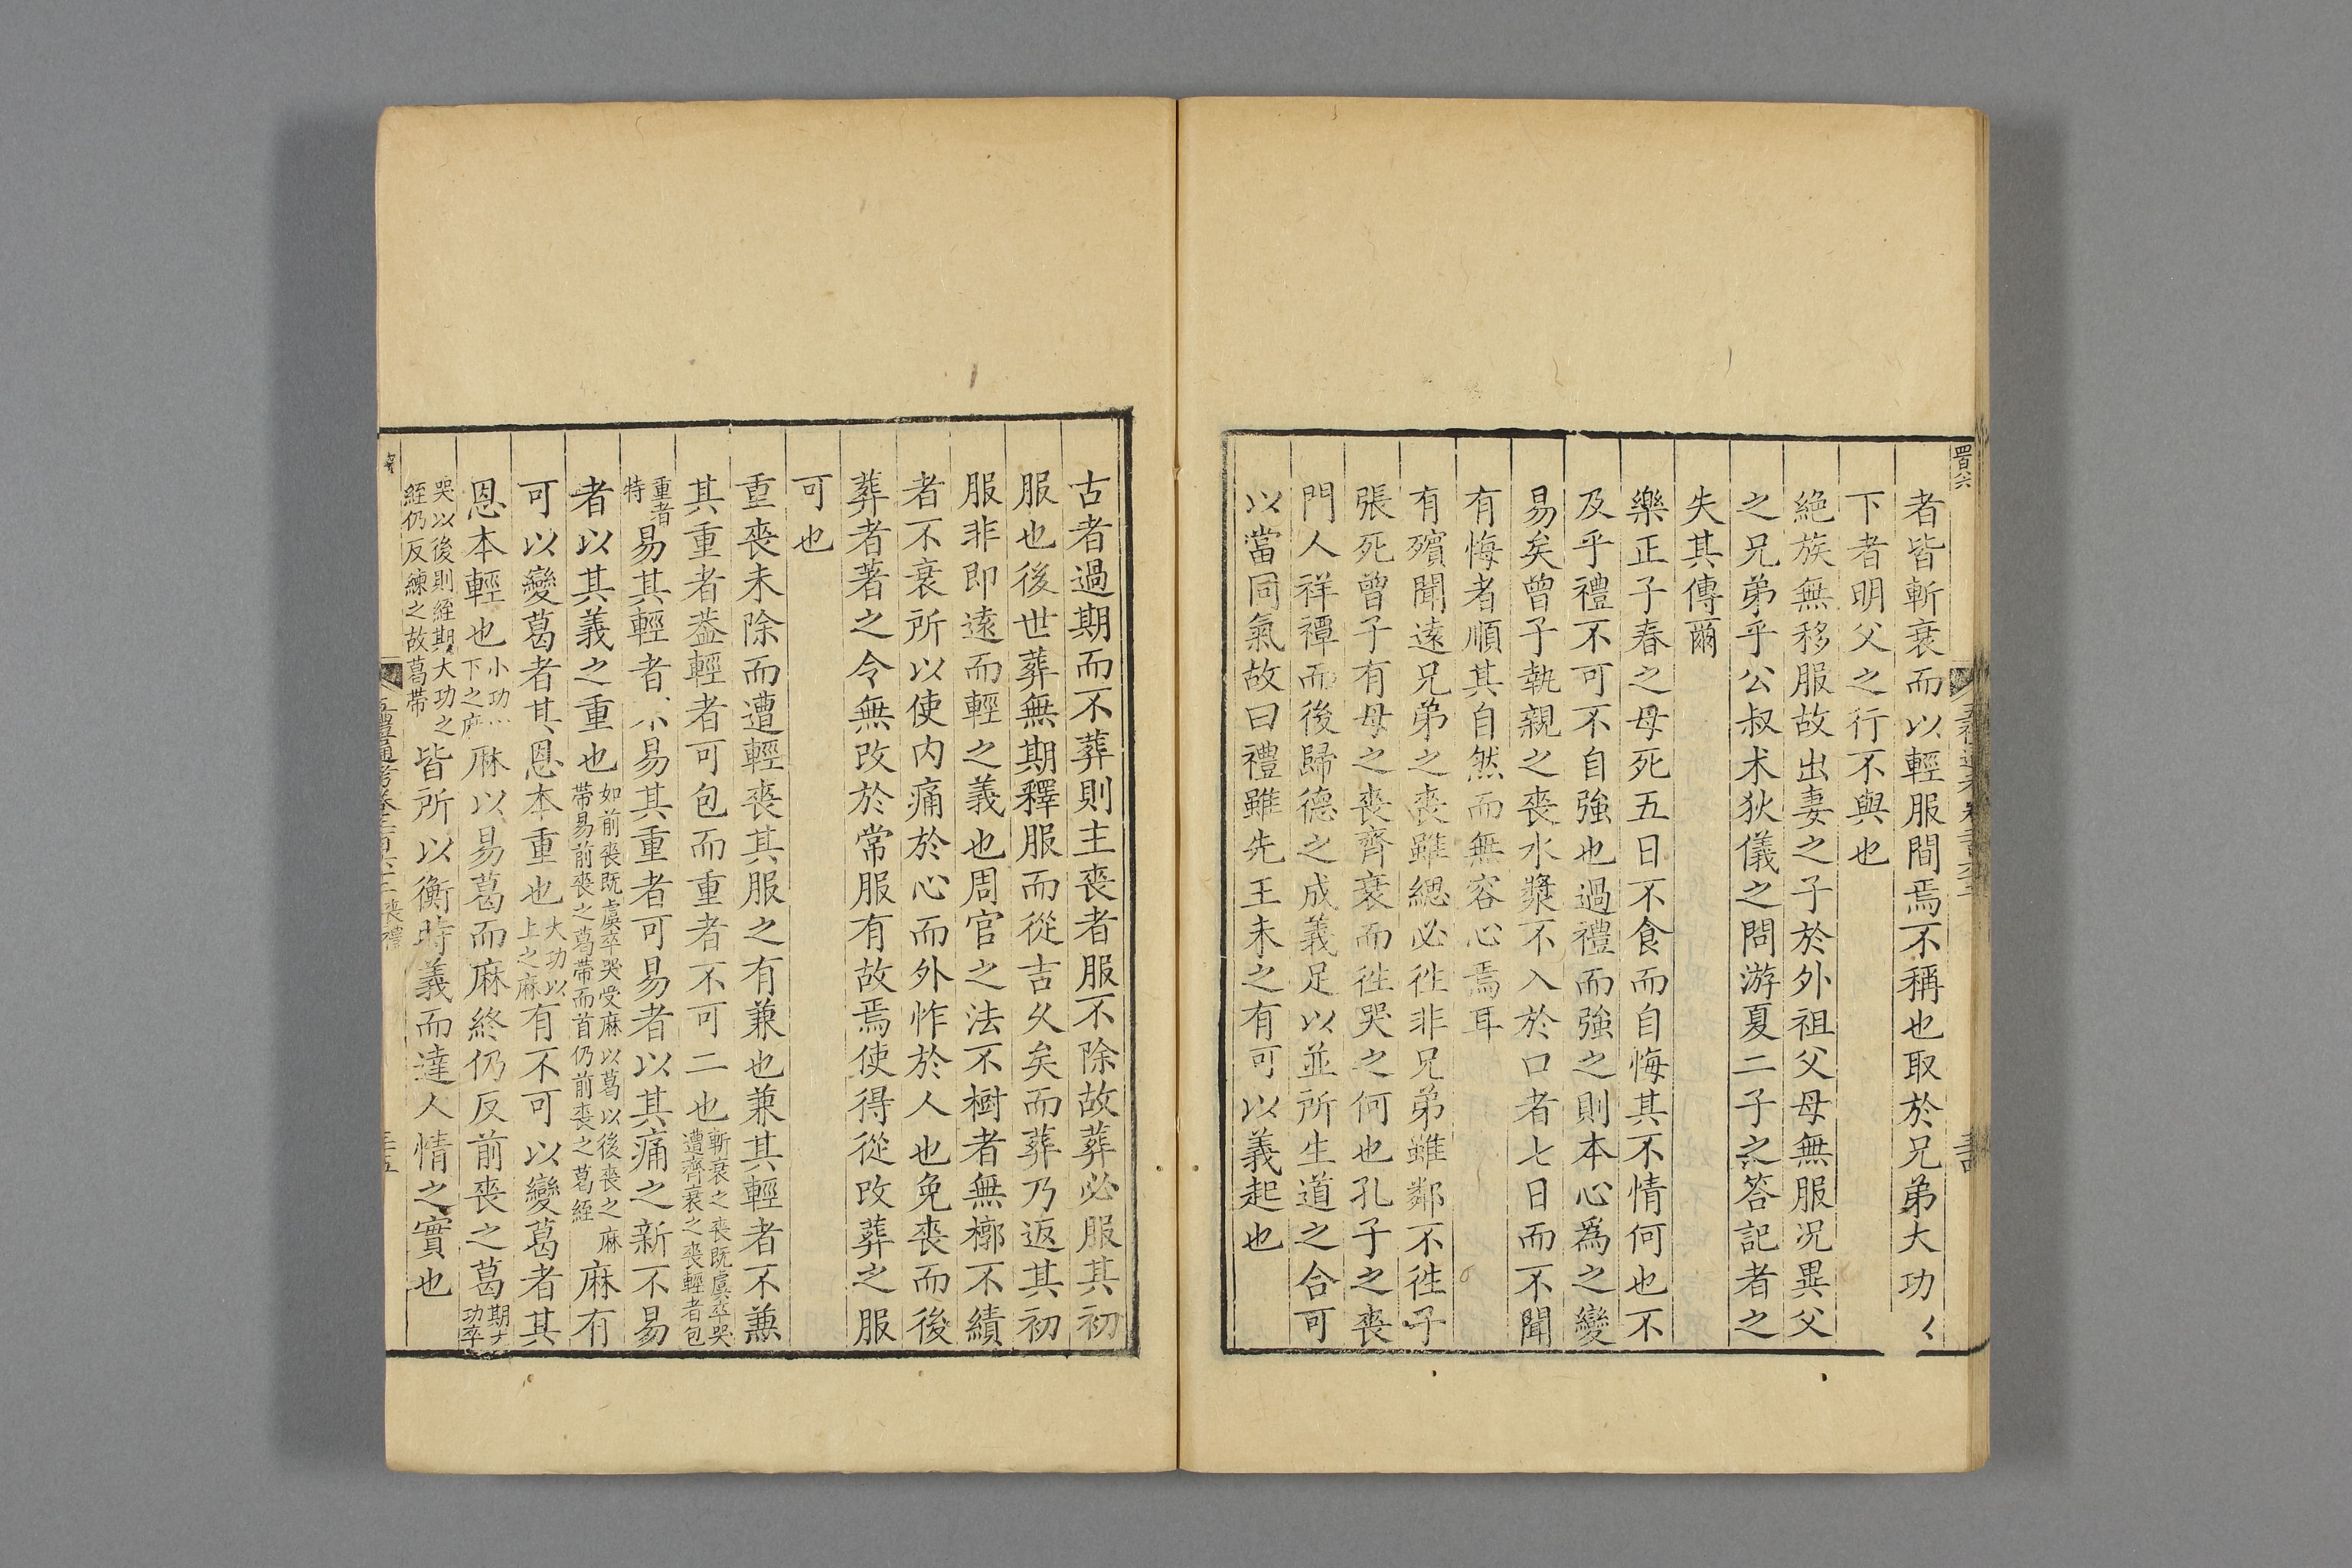 者皆斬衰而以輕服間焉不稱也取於兄弟大功
下者明父之行不與也
絶族無移服故出妻之子於外祖父母無服况異父
之兄弟乎公叔朩狄儀之問游夏二子之答記者之
失其傳爾
樂正子春之母死五日不食而自悔其不情何也不
及乎禮不可不自強也過禮而強之則本心爲之變
易矣曾子執親之喪水漿不入於口者七日而不聞
有悔者順其自然而無容心焉耳
有殯聞遠兄弟之喪雖緦必徃非兄弟雖鄰不徃子
張死曾子有母之喪齊衰而徃哭之何也孔子之喪
門人祥禫而後歸德之成義足以並所生道之合可
以當同氣故曰禮雖先王未之有可以義起也
古者過期而不葬則主喪者服不除故葬必服其初
服也後世葬無期釋服而從吉久矣而葬乃返其初
服非即遠而輕之義也周官之法不樹者無槨不績
者不衰所以使内痛於心而外怍於人也免喪而後
葬者著之令無改於常服有故焉使得從改葬之服
可也
重喪未除而遭輕喪其服之有兼也兼其輕者不兼
其重者葢輕者可包而重者不可二也斬衰之喪既虞卒哭遭齊衰之喪輕者包
重者特易其輕者不易其重者可易者以其痛之新不易
者以其義之重也如前喪既虞卒哭受麻以葛以後喪之麻帶易前喪之葛帶而首仍前喪之葛絰麻有
可以變葛者其恩本重也大功以上之麻有不可以變葛者其
恩本輕也小功下之麻麻以易葛而麻終仍反前喪之葛期大功卒
哭以後則絰期大功之絰仍反練之故葛帶皆所以衡時義而達人情之實也
五禮通考卷二百六十二喪禮